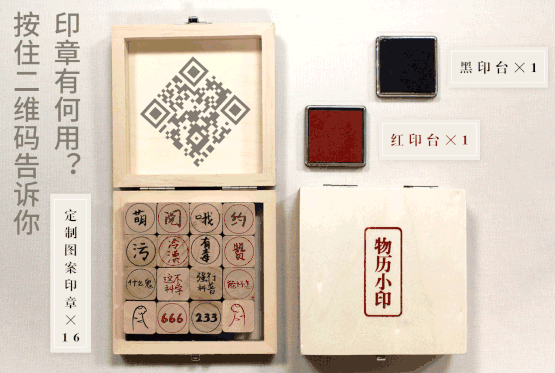 印章有何用？
按住二维码告诉你
定制图案印章×16
黑印台×1
红印台×1
物历小印
萌
阅
哦
约
污
冷漠
有毒
赞
什么鬼
这不科学
强行科普
666
233